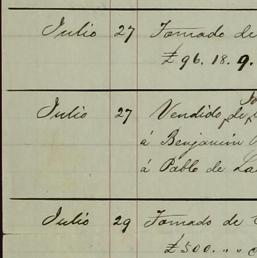 Julio 27 Tomado de
£96.18.9.
Julio 27 Vendido, de
á Benjamin
á Pablo de La
Julio 29 Tomado de
£500. " "